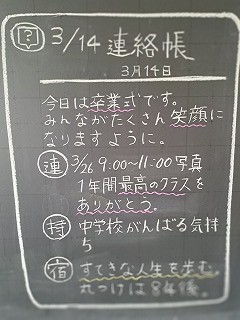 ? 3/14 連絡帳
3月14日
今日は卒業式です。
みんながたくさん笑顔に
なりますように。
連 3/26 9:00~11:00 写真
1年間最高のクラスを
ありがとう。
持 中学校がんばる気持
ち
宿 すてきな人生を歩む。
丸つけは84年後。